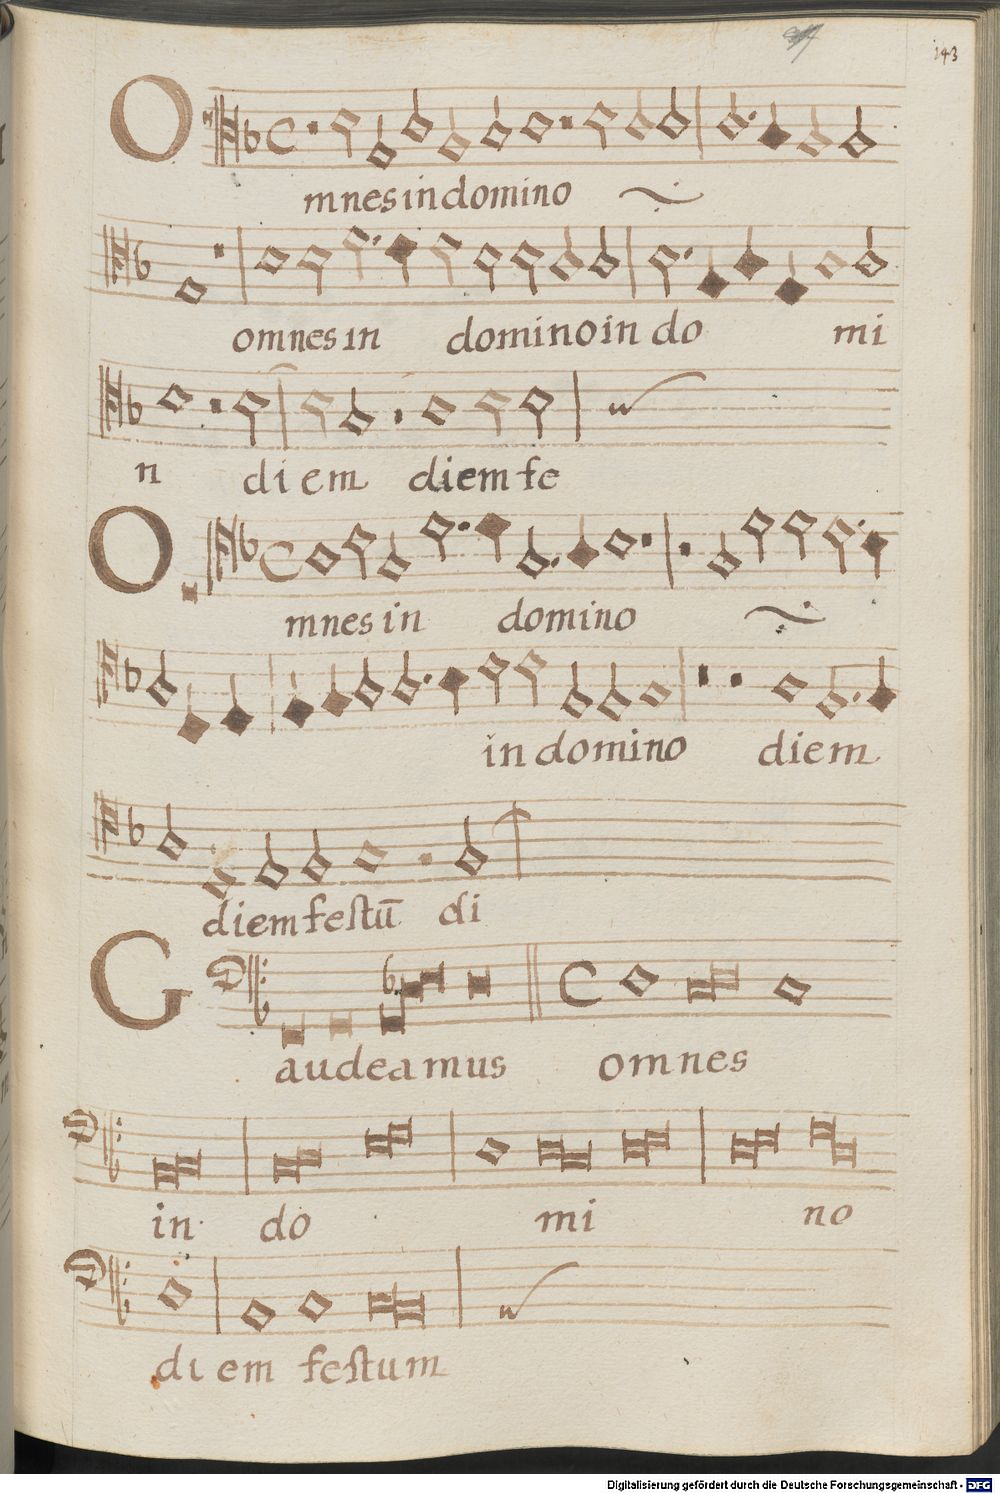 143
Omnes in domino
omnes in domino in do mi
n diem diem fe
Omnes in domino
in domino diem
diem festū di
Gaudeamus omnes
in do mi no
diem festum
Digitalisierung gefördert durch die Deutsche Forschungsgemeinschaft - DFG